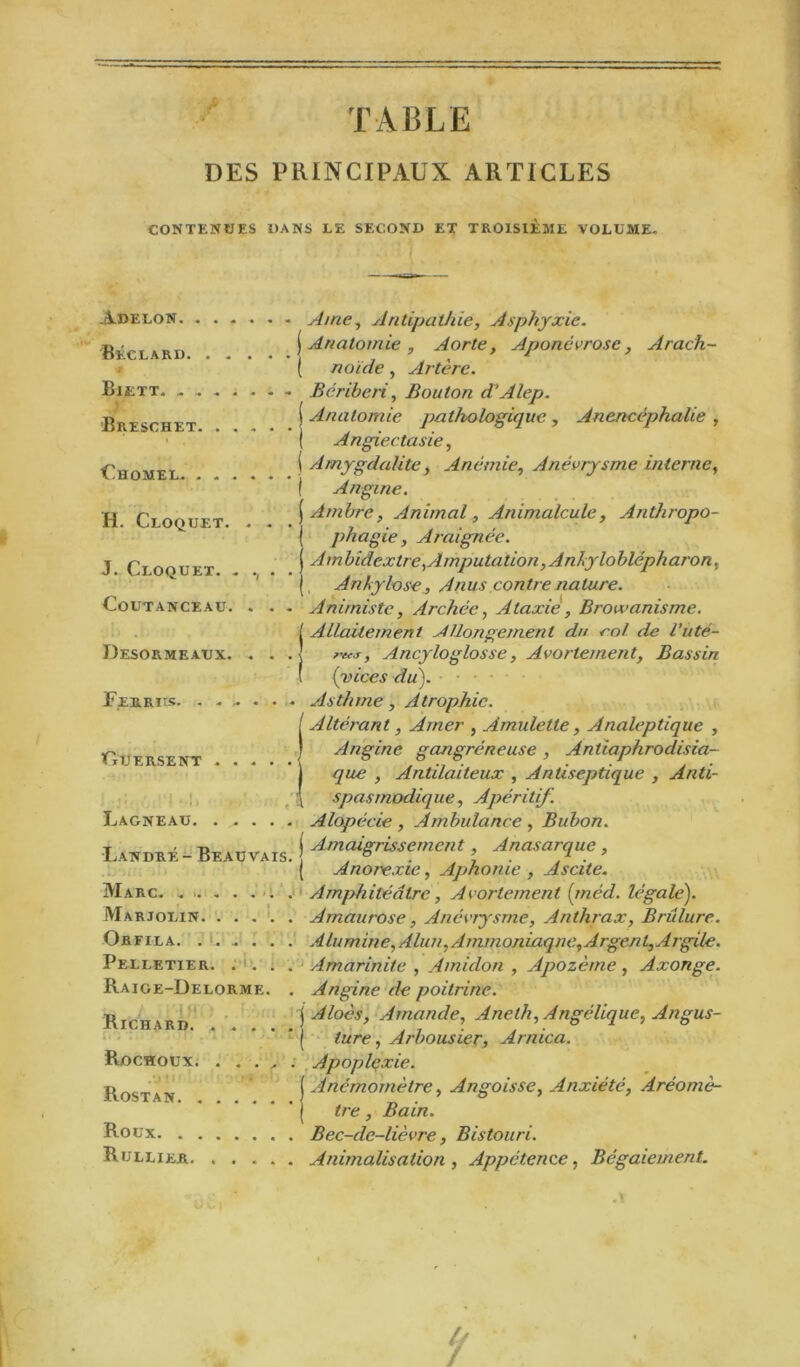 TABLE
DES PRINCIPAUX ARTICLES
CONTENUES DANS LE SECOND ET TROISIÈME VOLUME.
ADELON. . . . . . . Ame, Antipathie, Asphyxie.
BÉCLARD. . . . . . Anatomie, Aorte, Aponévrose, Arach-
noïde, Artère.
BIETT. . . . . . . . Bériberi, Bouton d'Alep.
BRESCHET. . . . . . Anatomie pathologique, Anencéphalie,
Angiectasie,
CHOMEL. . . . . . . Amygdalite, Anémie, Anévrysme interne,
Angine.
H. CLOQUET. . . . Ambre, Animal, Animalcule, Anthropo-
phagie, Araignée.
J. CLOQUET. . . . Ambidextre, Amputation, Ankyloblépharon,
Ankylose, Anus contre nature.
COUTANCEAU. . . . Animiste, Archée, Ataxie, Browanisme.
DESORMEAUX. . . . Allaitement Allongement du col de l'uté-
rus, Ancyloglosse, Avortement, Bassin
(vices du).
FERRUS. . . . . . . Asthme, Atrophie.
GUERSENT . . . . . Altérant, Amer, Amulette, Analeptique,
Angine gangréneuse, Antiaphrodisia-
que, Antilaiteux, Antiseptique, Anti-
spasmodique, Apéritif.
LAGNEAU. . . . . . Alopécie, Ambulance, Bubon.
LANDRÉ-BEAUVAIS. Amaigrissement, Anasarque,
Anorexie, Aphonie, Ascite.
MARC. . . . . . . . Amphitéâtre, Avortement (méd. légale).
MARJOLIN. . . . . . Amaurose, Anévrysme, Anthrax, Brûlure.
ORFILA. . . . . . . Alumine, Alun, Ammoniaque, Argent, Argile.
PELLETIER. . . . . Amarinite, Amidon, Apozème, Axonge.
RAIGE-DELORME. . Angine de poitrine.
RICHARD. . . . . . Aloès, Amande, Aneth, Angélique, Angus-
ture, Arbousier, Arnica.
ROCHOUX. . . . . . Apoplexie.
ROSTAN. . . . . . . Anémomètre, Angoisse, Anxiété, Aréomè-
tre, Bain.
ROUX. . . . . . . . Bec-de-lièvre, Bistouri.
RULLIER. . . . . . Animalisation, Appétence, Bégaiement.